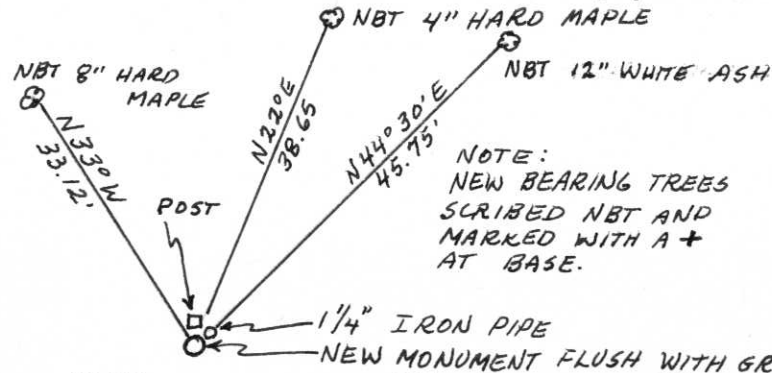 NBT 4" HARD MAPLE
NBT 8" HARD
MAPLE
NBT 12" WHITE ASH
N33°W
33.12'
N22°E
38.65
N44°30'E
45.75'
POST
NOTE:
NEW BEARING TREES
SCRIBED NBT AND
MARKED WITH A +
AT BASE.
1 1/4" IRON PIPE
NEW MONUMENT FLUSH WITH GR